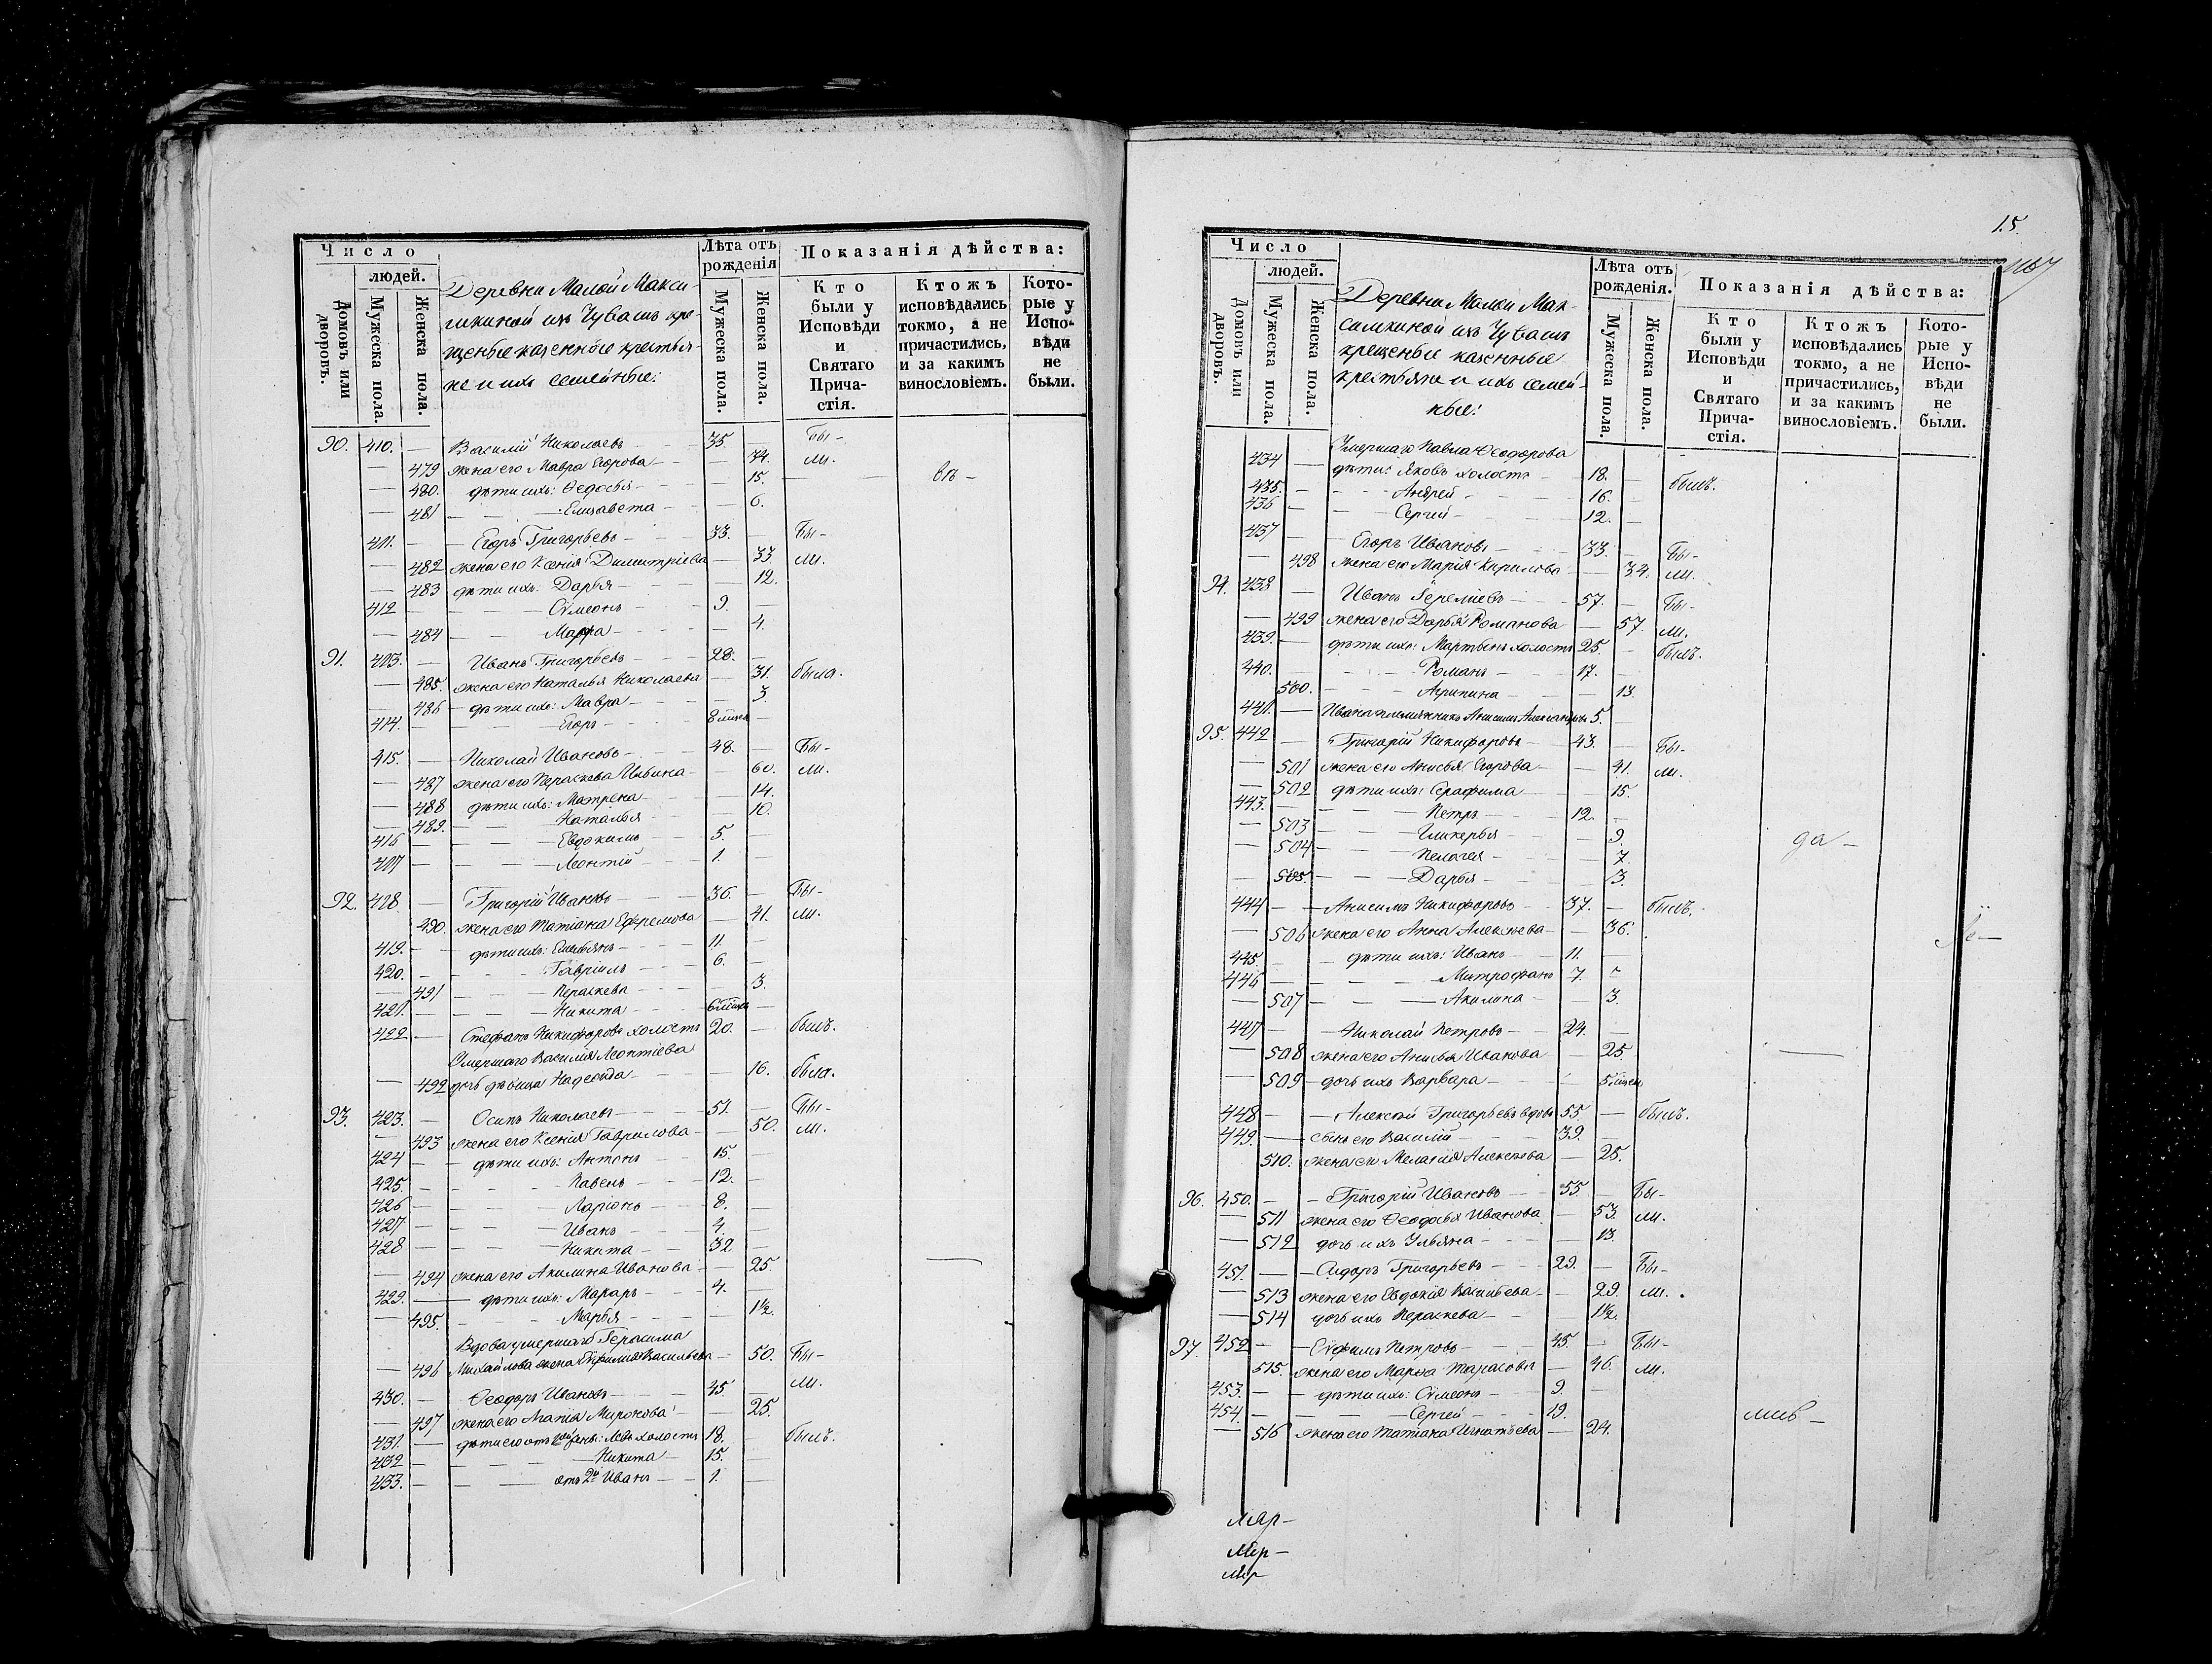 Число
людей.
Домовъ или дворовъ.
Мужеска пола.
Женска пола.
Деревни Малой Макси-
мкиной изъ Чувашъ кре-
щеные казенные крестья-
не и ихъ семейные:
Лѣта отъ рожденія
Мужеска пола.
Женска пола.
Показанія дѣйства:
Кто были у Исповѣди и Святаго Прича-стія.
Ктожъ исповѣдались токмо, а не причастились, и за какимъ винословіемъ.
Кото-рые у Испо-вѣди не были.
90. 410. — Василій Николаевъ — 35. — Бы-
— 479 жена его Мавра Егорова — 34. ли.
— 480. дѣти ихъ: Ѳедосья — 15. —
— 481 — Елизавета — 6.
411. — Егоръ Григорьевъ — 33. — Бы-
— 482 жена его Ксенія Димитріева — 33. ли.
— 483 дѣти ихъ: Дарья — 12.
412 — Сѵмеонъ — 9. —
— 484 — Марѳа — 4.
91. 413. — Иванъ Григорьевъ — 28. —
— 485. жена его Наталья Николаева — 31. была.
— 486 — дѣти ихъ: Мавра — 3.
414. — Егоръ — 8 —
415. — Николай Ивановъ — 48. — Бы-
— 487 жена его Пераскева — 60. ли.
— 488 дѣти ихъ: Матрена — 14.
— 489. — Наталья — 10.
416 — Евдокимъ — 5. —
417 — Леонтій — 1. —
92. 418 — Григорій Ивановъ — 36. — Бы-
490. жена его Татіана Ефремова — 41. ли.
419. — дѣти ихъ: Емельянъ — 11. —
420. — Гавріилъ — 6. —
491 — Пераскева — 3.
421. — Никита — 6 —
422 — Стефанъ Никифоровъ холостъ 20. — былъ.
Умершаго Василія Леонтіева
— 492 дочь дѣвица Надежда — 16. была.
93. 423. — Осипъ Николаевъ — 51. — Бы-
— 493 жена его Ксенія Гаврилова — 50. ли.
424 — дѣти ихъ: Антонъ — 15. —
425. — Павелъ — 12. —
426 — Ларіонъ — 8. —
427 — Иванъ — 4. —
428 — Никита — 32
— 494 жена его Акилина Иванова — 25.
429. — дѣти ихъ: Макаръ — 4. —
— 495. — Марья — 1½.
Вдова умершаго Герасима
— 496 Михайлова жена Васильева — 50. Бы-
ли.
430. — Ѳеодоръ Ивановъ — 45. —
— 497 жена его Миронова — 25.
431. — дѣти его отъ 1й жены: Левъ холостъ 18. — былъ.
432 — Никита — 15. —
433. — отъ 2й Иванъ — 1. —
15.
Число
людей.
Домовъ или дворовъ.
Мужеска пола.
Женска пола.
Деревни Малой Мак-
симкиной изъ Чувашъ
крещеные казенные
крестьяне и ихъ семей-
ные:
Лѣта отъ рожденія.
Мужеска пола.
Женска пола.
Показанія дѣйства:
Кто были у Исповѣди и Святаго Прича-стія.
Ктожъ исповѣдались токмо, а не причастились, и за какимъ винословіемъ.
Кото-рые у Испо-вѣди не были.
Умершаго Павла Ѳеодорова
434 — дѣти: Яковъ холостъ — 18. — былъ.
435. — Андрей — 16. —
436 — Сергей — 12. —
437 — Егоръ Ивановъ — 33. — Бы-
— 498 жена его Марія Кирилова — 34. ли.
94. 438 — Иванъ Еремѣевъ — 57. — Бы-
— 499 жена его Дарья Романова — 57. ли.
439. — дѣти ихъ: Мартынъ холостъ 25. — былъ.
440. — Романъ — 17. —
500. — Агрипина — 13.
441. — Ивана племянникъ Анисимъ 5. —
95. 442 — Григорій Никифоровъ — 43. — Бы-
— 501 жена его Анисья Егорова — 41. ли.
— 502 дѣти ихъ: Серафима — 15.
443. — Петръ — 12. —
— 503 — Гликерья — 9.
— 504 — Пелагея — 7.
— 505. — Дарья — 3.
444 — Анисимъ Никифоровъ — 37. — былъ.
— 506 жена его Анна Алексѣева — 36.
445. — дѣти ихъ: Иванъ — 11. —
446 — Митрофанъ 7.
— 507 — Акилина — 3.
447 — Николай Петровъ — 24. —
— 508 жена его Анисья Иванова — 25.
— 509 — дочь ихъ Варвара — 5
448 — Алексѣй Григорьевъ вдовъ 55 — былъ.
449. — сынъ его Василій — 39. —
510. жена его Меланія Алексѣева — 25.
96. 450. — Григорій Ивановъ — 55. — Бы-
— 511 жена его Ѳеодосья Иванова — 53. ли.
— 512 дочь ихъ Ульяна — 13.
451. — Сидоръ Григорьевъ — 29. — Бы-
— 513 жена его Евдокія Васильева — 29. ли.
— 514 дочь ихъ Пераскева — 1½.
97 452 — Еѵѳимъ Петровъ — 45. — Бы-
515. жена его Марѳа Тарасова — 46. ли.
453. — дѣти ихъ: Сѵмеонъ — 9. —
454. — Сергей — 19. —
— 516 жена его Татіана Игнатьева — 24.